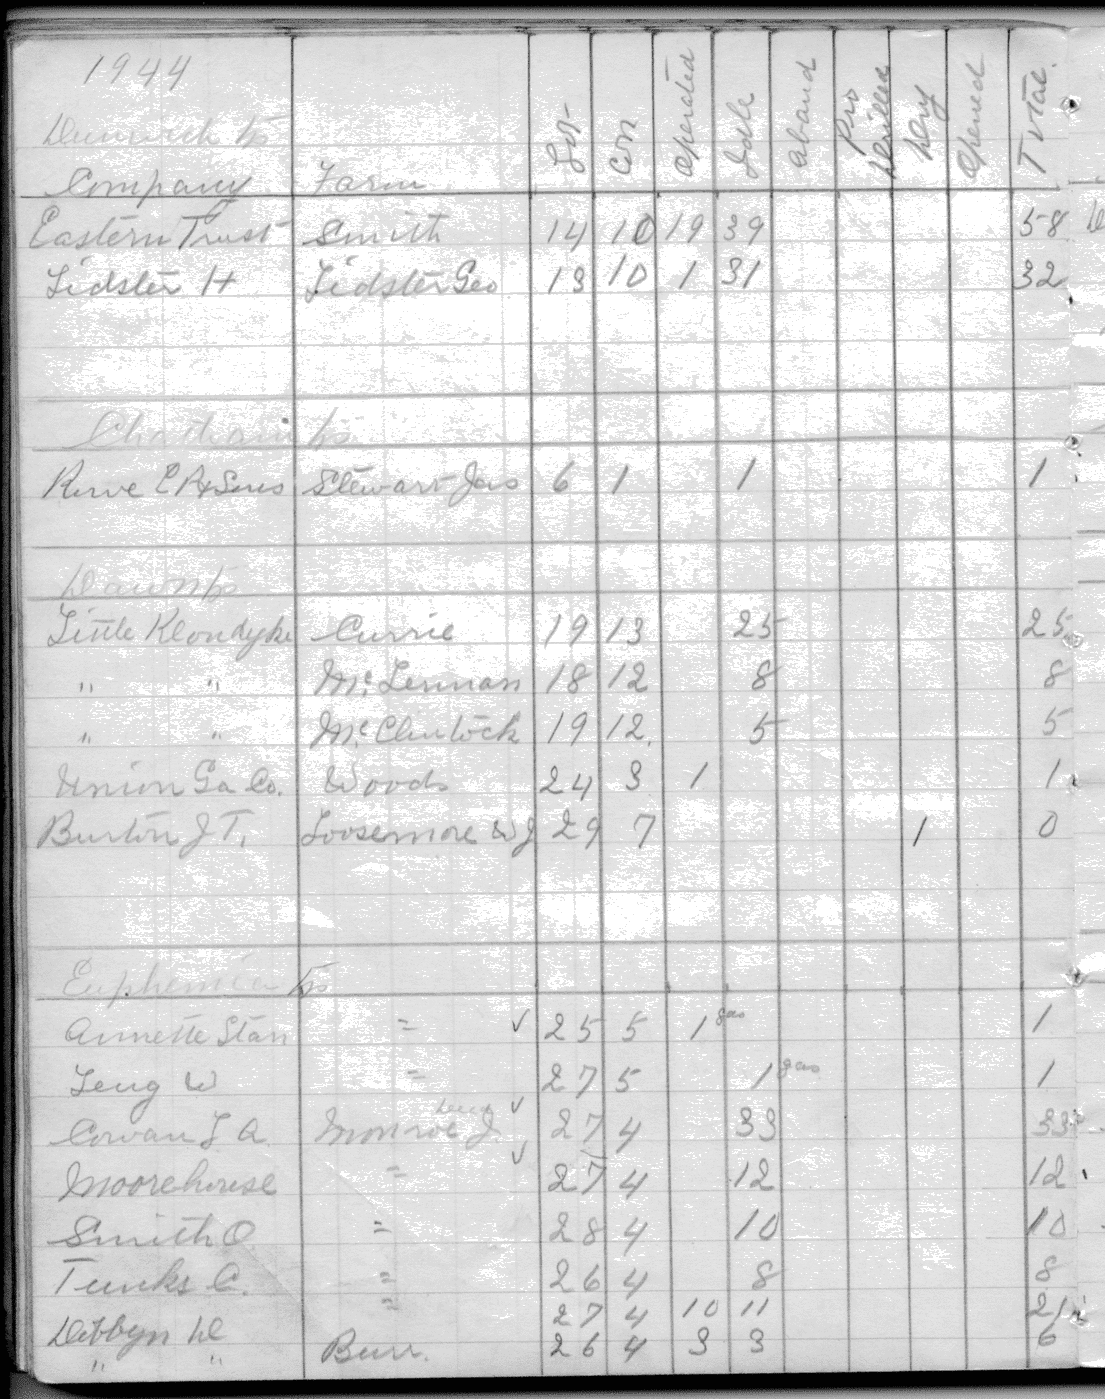 1944
Dunwich Tp
Company Farm Lot Con Operated Idle Aband Pro Drilled Dry Opened Total
Eastern Trust Smith 14 10 19 39 58
Lidster H Lidster Geo 13 10 1 31 32
Chatham Tp
Rowe E R & Sons Stewart Jas 6 1 1 1
Dawn Tp
Little Klondyke Currie 19 13 25 25
" " McLennan 18 12 8 8
" " McClintock 19 12. 5 5
Union Ga Co. Woods 24 3 1 1
Burton J T, Loosemore W J 29 7 1 0
Euphemia Tp
Annette Stan = ✓ 25 5 1 gas 1
Leng W = 27 5 1 gas 1
Cowan L A. Monroe J. ✓ 27 4 33 33
Moorehouse = ✓ 27 4 12 12
Smith O = 28 4 10 10
Tunks C. = 26 4 8 8
= 27 4 10 11 21
Debbyn W
" " Burr. 26 4 3 3 6